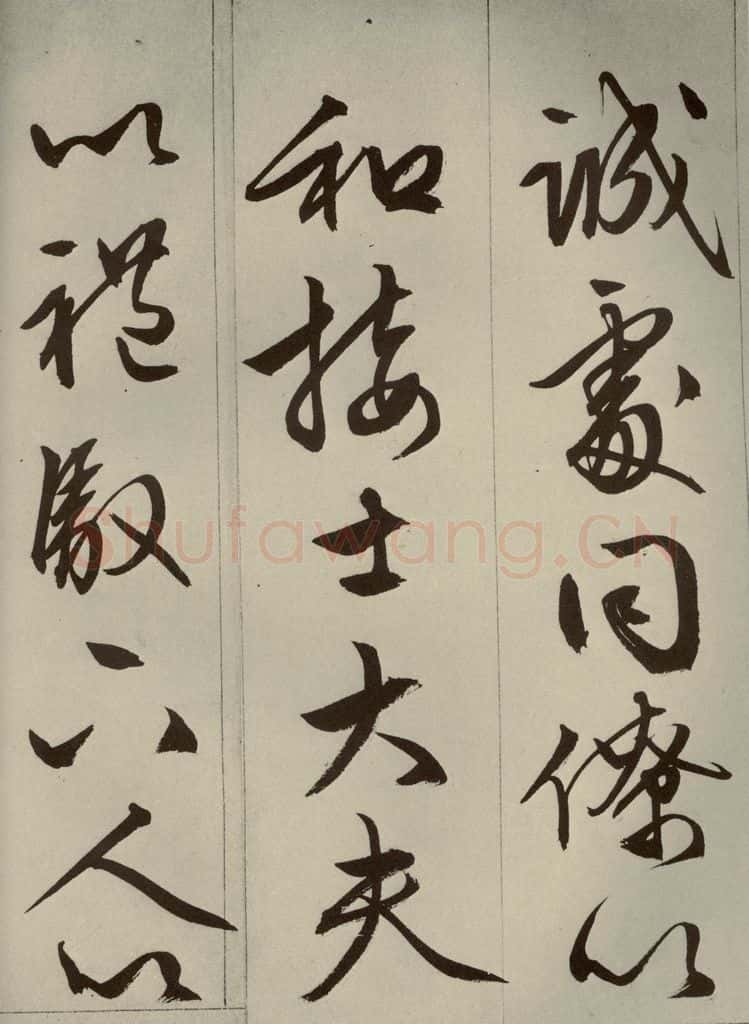 誠處同僚以
和接士大夫
以禮馭下人以
Shufawang.CN